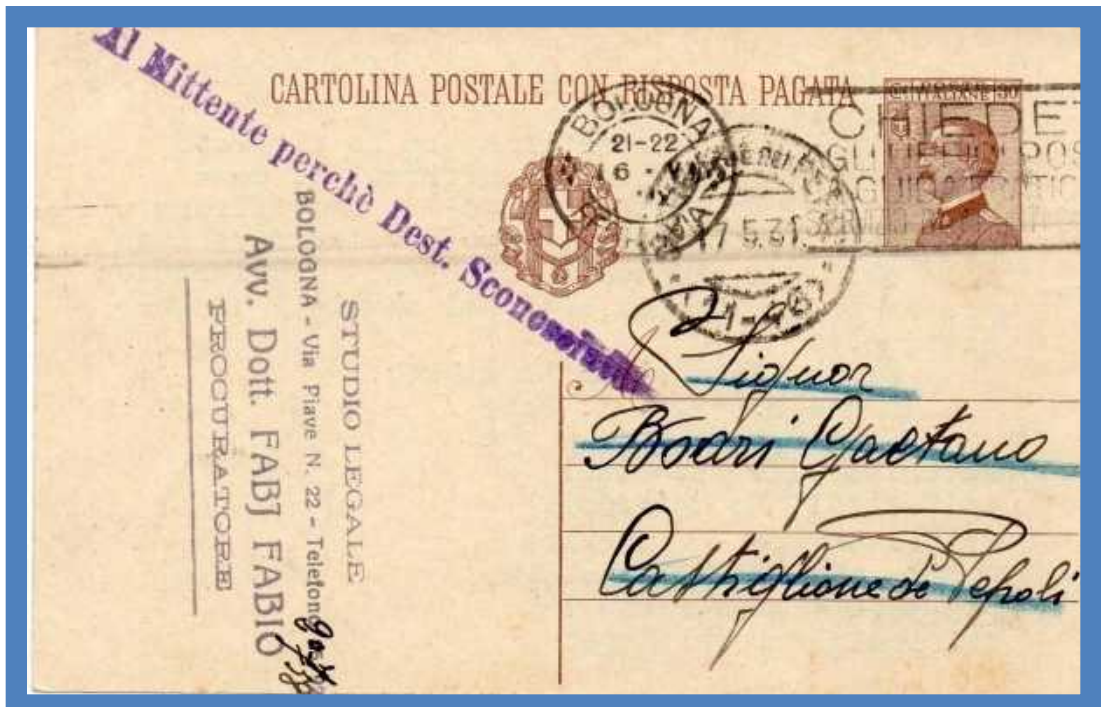 Al Mittente perchè Dest. Sconosciuto
CARTOLINA POSTALE CON RISPOSTA PAGATA
BOLOGNA
21-22
16
17 5.31
CHIEDET
STUDIO LEGALE
BOLOGNA - Via Piave N. 22 - Telefono
Avv. Dott. FABJ FABIO
PROCURATORE
Signor
Bodri Gaetano
Castiglione de Pepoli